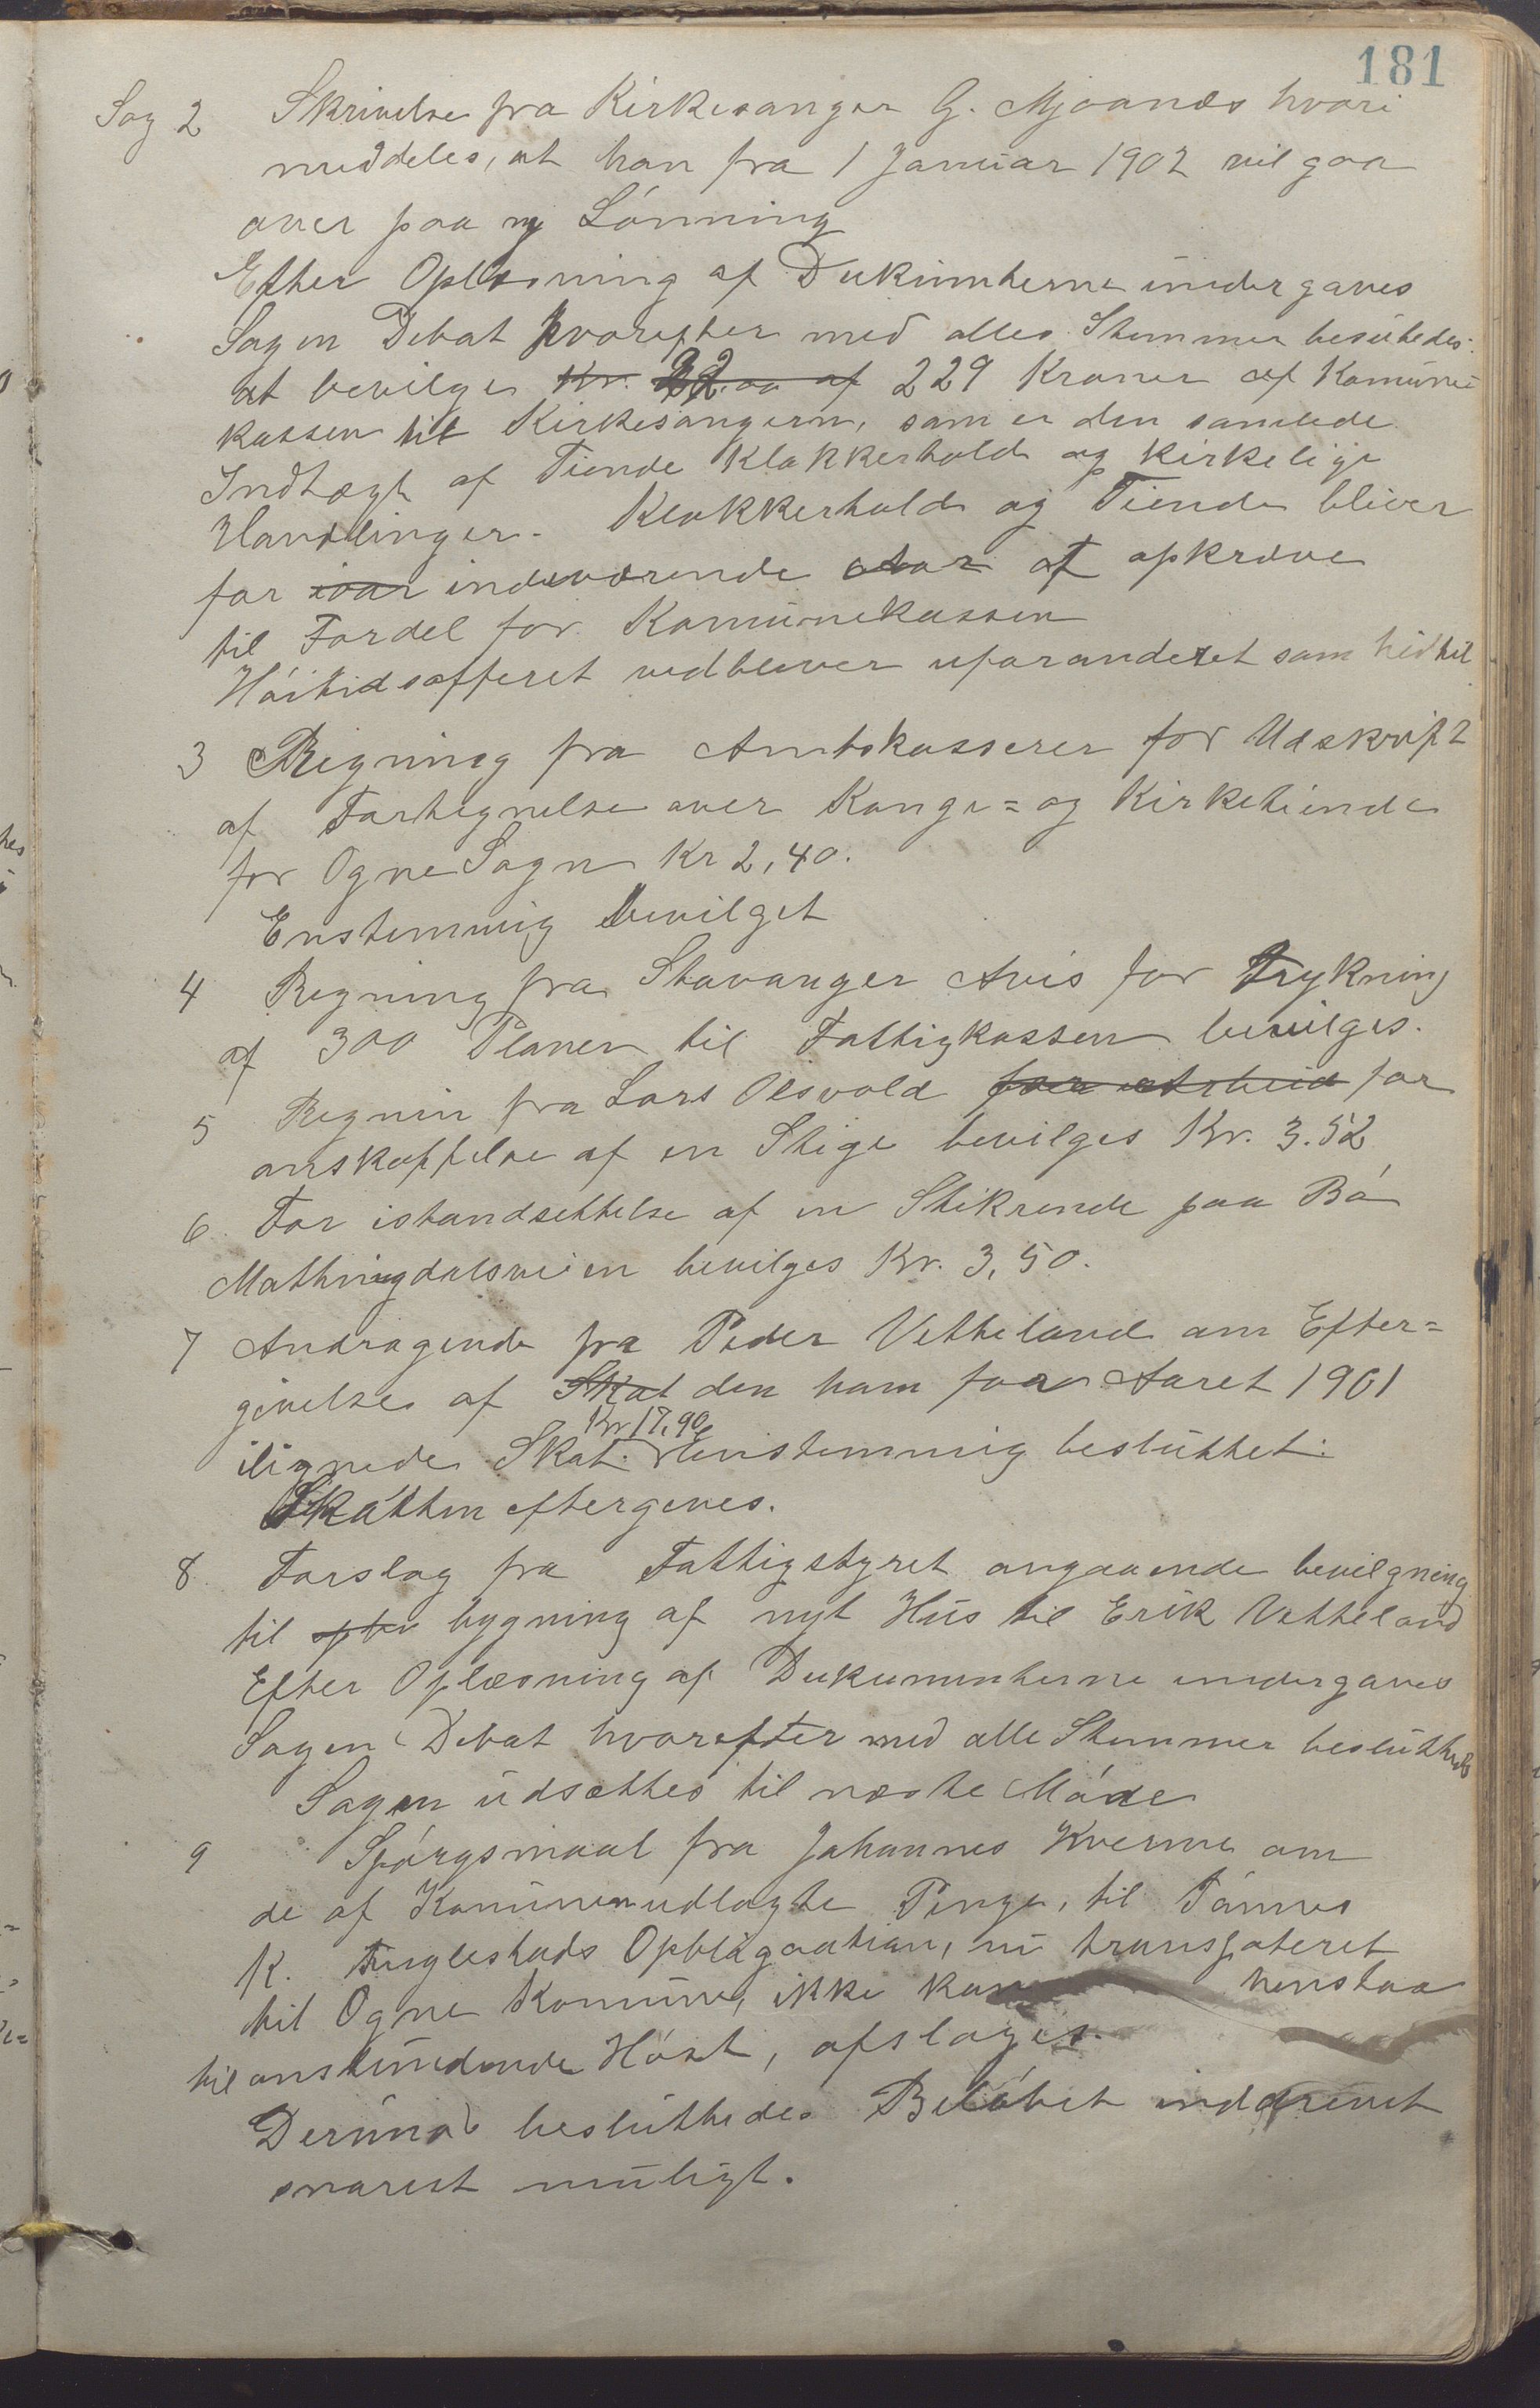 181
Sag 2 Skrivelse fra Kirkesanger G. Mjaanes hvori
meddeles, at han fra 1 Januar 1902 vil gaa
over paa ny Lönning
Efter Oplæsning af Dukumnterne undergaves
Sagen Debat hvorefter med alles Stemmer besutedes:
at bevilges Kr. 22 00 af 229 Kroner af Komune
kassen til Kirkesangern, som er den samlede
Indtægt af Tiende Klokkerhold og kirkelige
Handlinger. Klokkerhold og Tiende bliver
for iaar indeværende Aar at opkræve
til Fordel for Komunekassen
Höitidsofferet vedbliver uforanderet som hidtil
3 Regning fra Amtskasserer for Udskrift
af Fortegnelse over Konge= og Kirketiende
for Ogne Sogn Kr 2,40.
Enstemmig bevilget
4 Regning fra Stavanger Avis for Trykning
af 300 Planer til Fattigkassen bevilges.
5 Regnin fra Lars Olsvold for arbeid for
anskaffelse af en Stige bevilges Kr. 3.52
6. For istandsettelse af en Stikrende paa Bö
Mathingdalsveien bevilges Kr. 3,50.
7 Andragende fra Peder Vetteland om Efter=
givelse af Skat den ham for Aaret 1901
Kr 17,90
ilignede Skat. Enstemmig besluttet:
Skatten eftergives.
8. Forslag fra Fattigstyret angaaende bevilgning
til bygning af nyt Hus til Erik Vetteland
Efter Oplæsning af Dukumnterne undergaves
Sagen Debat hvorefter med alle Stemmer besluttedes
Sagen udsættes til næste Möde
9 Spörgsmaal fra Johannes Kverme om
de af Komunen udlagte Penge, til Tönnes
K. Fuglestads Opbligaation, nu transporteret
til Ogne Komune, ikke kan henstaa
til anstundende Höst, afslages.
Derimod besluttedes Belöbet inddrevet
snarest muligt.